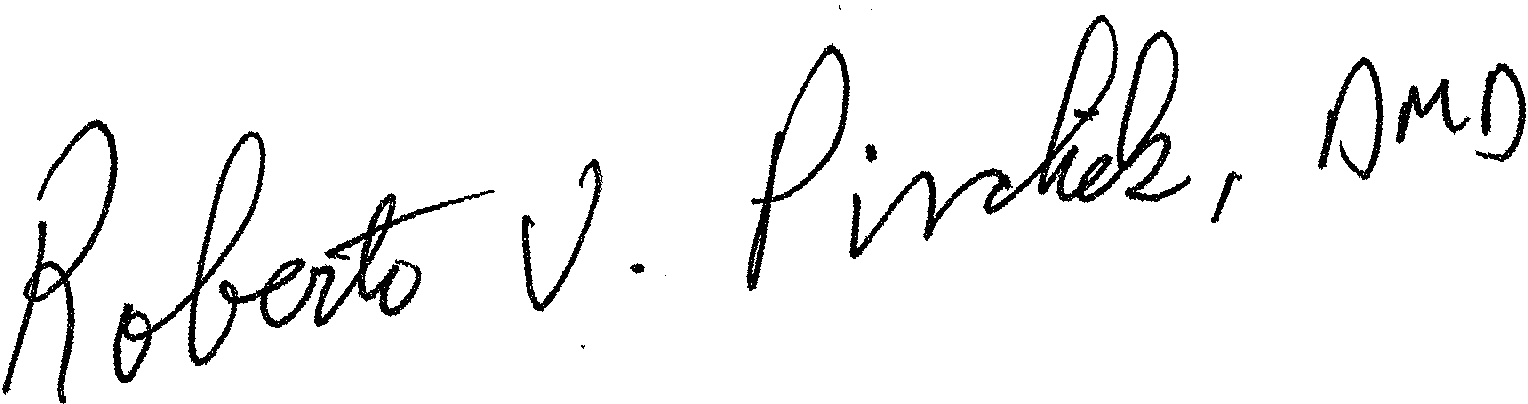 Roberto V. Pirchek, DMD